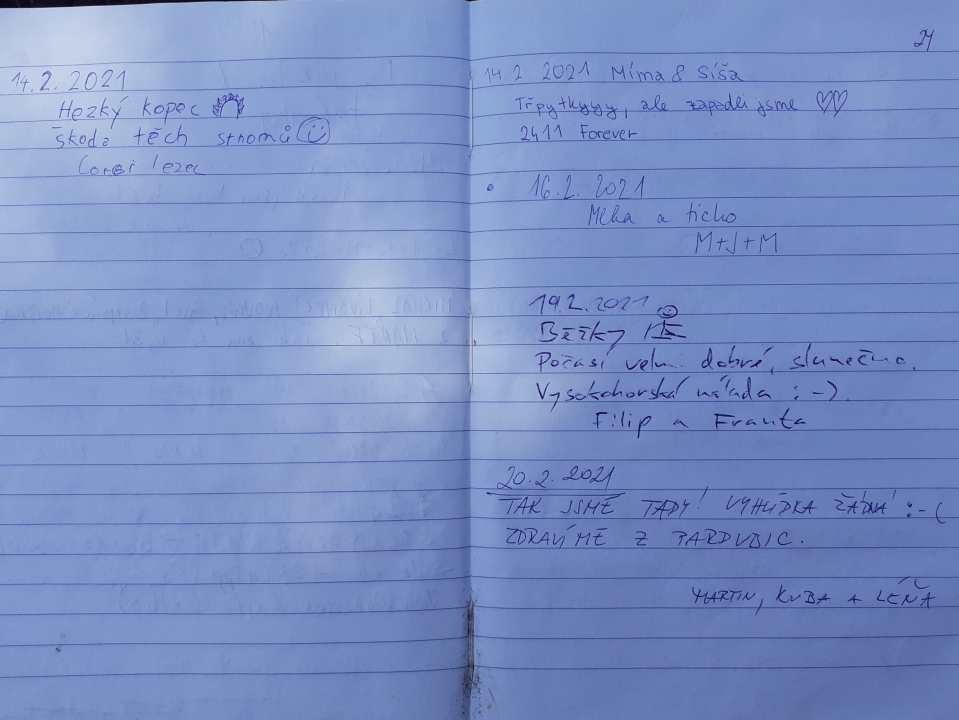 14.2.2021
Hezký kopec
škoda těch stromů
lezec
21
14.2 2021 Míma & Síša
Třpytkyyy, ale zapadli jsme
2411 Forever
16.2.2021
Mlha a ticho
M+J+M
19.2.2021
Běžky
Počasí velmi dobré, slunečno.
Vysokohorská nálada :-).
Filip a Franta
20.2.2021
TAK JSME TADY! VYHLÍDKA ŽÁDNÁ :-(
ZDRAVÍME Z PARDUBIC.
MARTIN, KUBA A LÉŇA